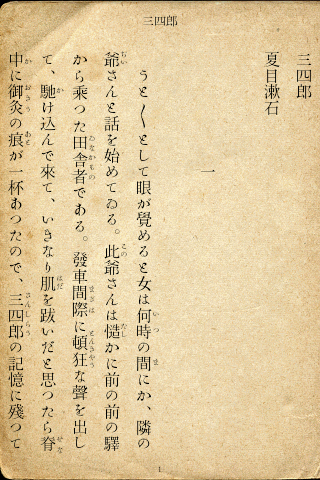 三四郎
三四郎
夏目漱石
一
うと〳〵として眼が覺めると女は何時の間にか、隣の
爺さんと話を始めてゐる。此爺さんは慥かに前の前の驛
から乘つた田舍者である。發車間際に頓狂な聲を出し
て、馳け込んで來て、いきなり肌を跋いだと思つたら脊
中に御灸の痕が一杯あつたので、三四郎の記憶に殘つて
1